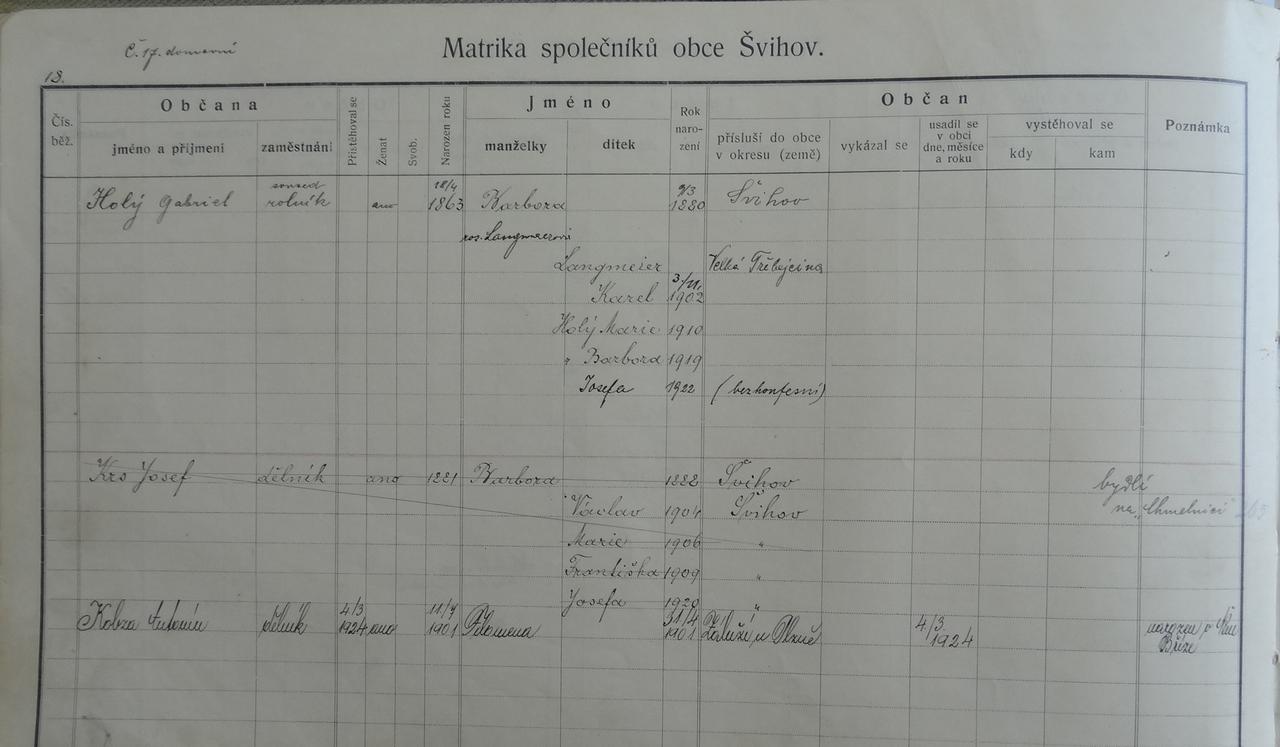 Č. 17. domovní
Matrika společníků obce Švihov.
13.
Čís. běž.
Občana
jméno a příjmení
zaměstnání
Přistěhoval se
Ženat
Svob.
Narozen roku
Jméno
manželky
dítek
Rok naro- zení
Občan
přísluší do obce v okresu (země)
vykázal se
usadil se v obci dne, měsíce a roku
vystěhoval se
kdy
kam
Poznámka
soused 18/4 9/3
Holý Gabriel rolník ano 1863 Barbora 1880 Švihov
roz. Langmeierová
Langmeier Velká
3/11.
Karel 1902
Holý Marie 1910
" Barbora 1919
Josefa 1922 (bezkonfesní)
Krs Josef dělník ano 1881 Barbora 1888 Švihov bydlí
Václav 1904 Švihov na „Chmelnici"
Marie 1906 "
Františka 1909 "
Josefa 1920 "
4/3 11/7 31/4
Kobza Antonín dělník 1924 ano 1901 Filomena 1901 u Plzně 4/3 1924 narozen v
Bříze